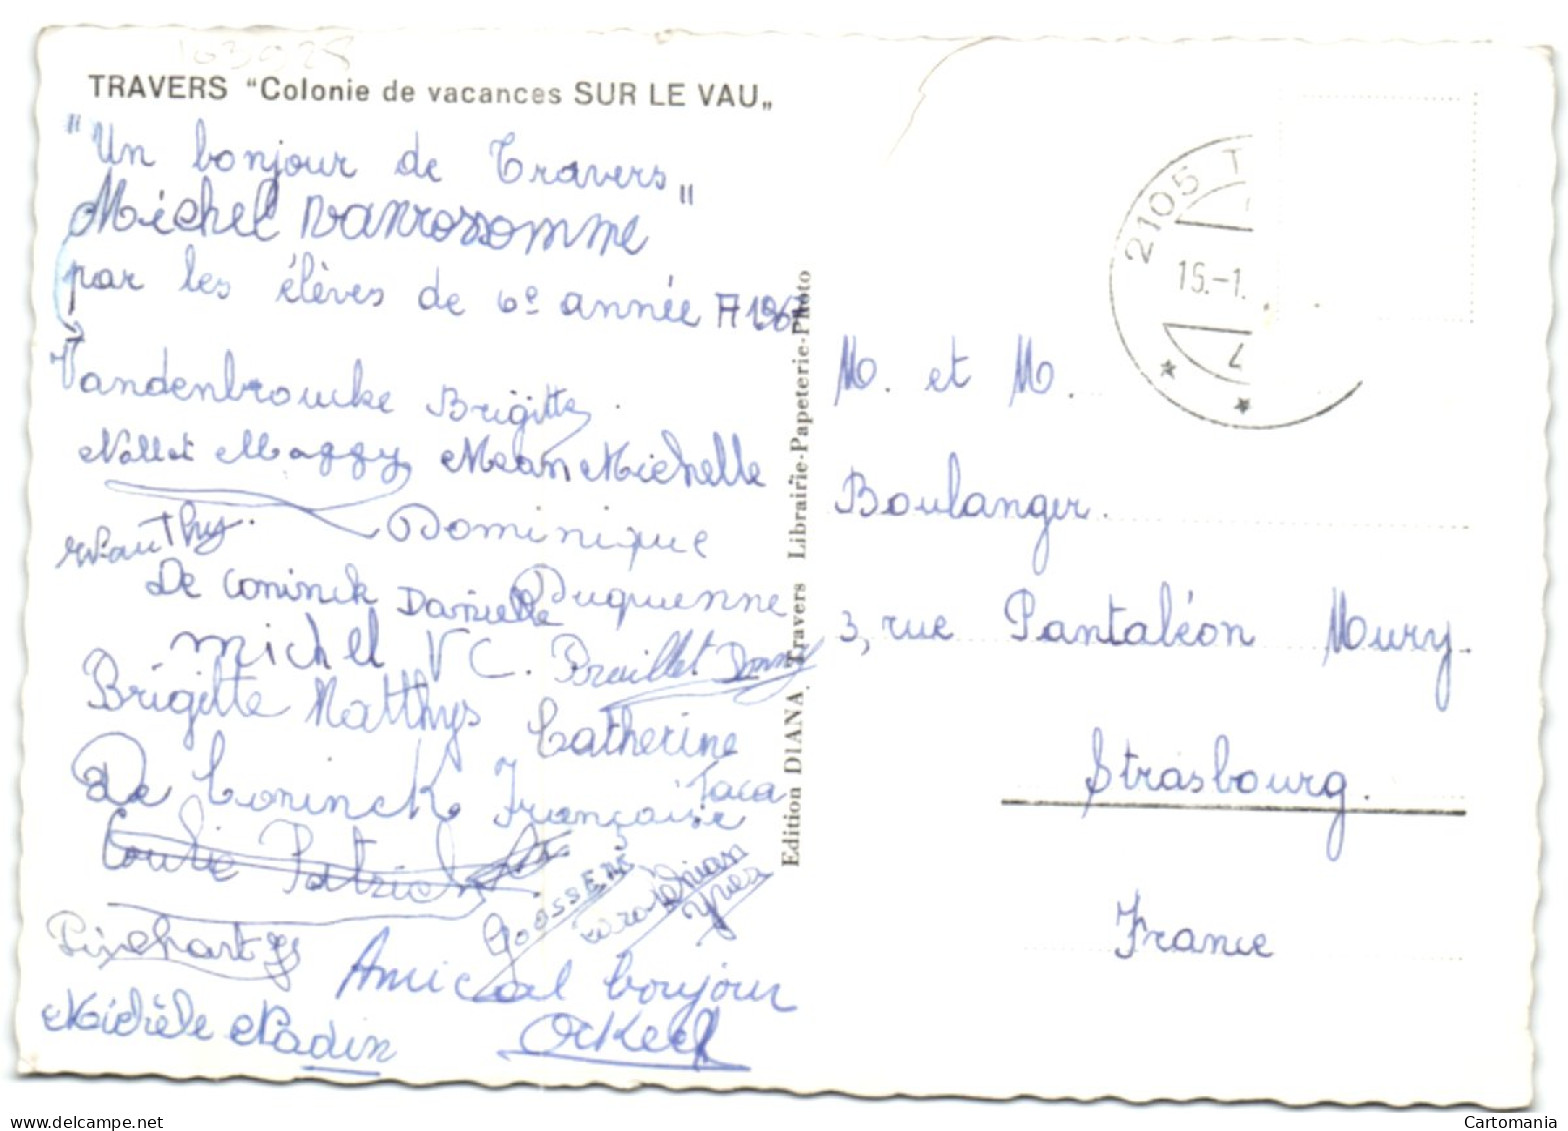 TRAVERS "Colonie de vacances SUR LE VAU„
"Un bonjour de Travers„
Michel Vanrossomme
par les élèves de 6e année A 1967
Vandenbroucke Brigitte.
Nollet Maggy Mean Michelle
Wauthy. Dominique
De Coninck Danielle Duquenne
michel V C. Braillet Danny
Brigitte Matthys Catherine
De Coninck Françoise Taca
Coulie Patrick
GoossENS
Yves
Amical bonjour
Michèle Nadin
2105 T
15.-1.
Edition DIANA, Travers Librairie-Papeterie-Photo
M. et M.
Boulanger.
3, rue Pantaléon Mury.
Strasbourg.
France
delcampe.net
Cartomania